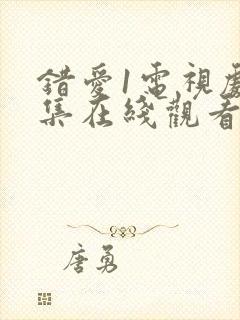 錯愛1電視劇
集在綫觀看
唐勇